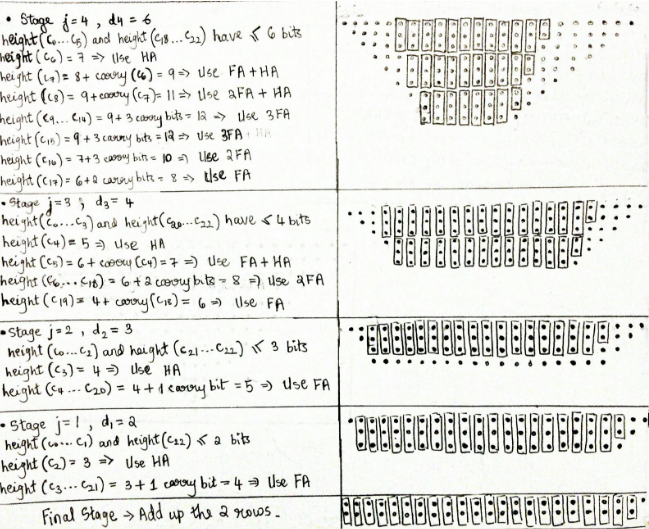 • Stage j=4 , d4 = 6
height (c0...c5) and height (c18...c22) have ≤ 6 bits
height (c6) = 7 => Use HA
height (c7) = 8 + carry (c6) = 9 => Use FA + HA
height (c8) = 9 + carry (c7) = 11 => Use 2FA + HA
height (c9...c14) = 9 + 3 carry bits = 12 => Use 3FA
height (c15) = 9 + 3 carry bits = 12 => Use 3FA
height (c16) = 7 + 3 carry bits = 10 => Use 2FA
height (c17) = 6 + 2 carry bits = 8 => Use FA
• Stage j=3 , d3 = 4
height (c0...c3) and height (c20...c22) have ≤ 4 bits
height (c4) = 5 => Use HA
height (c5) = 6 + carry (c4) = 7 => Use FA + HA
height (c6...c18) = 6 + 2 carry bits = 8 => Use 2FA
height (c19) = 4 + carry (c18) = 6 => Use FA
• Stage j=2 , d2 = 3
height (c0...c2) and height (c21...c22) ≤ 3 bits
height (c3) = 4 => Use HA
height (c4...c20) = 4 + 1 carry bit = 5 => Use FA
• Stage j=1 , d1 = 2
height (c0...c1) and height (c22) ≤ 2 bits
height (c2) = 3 => Use HA
height (c3...c21) = 3 + 1 carry bit = 4 => Use FA
Final Stage → Add up the 2 rows.